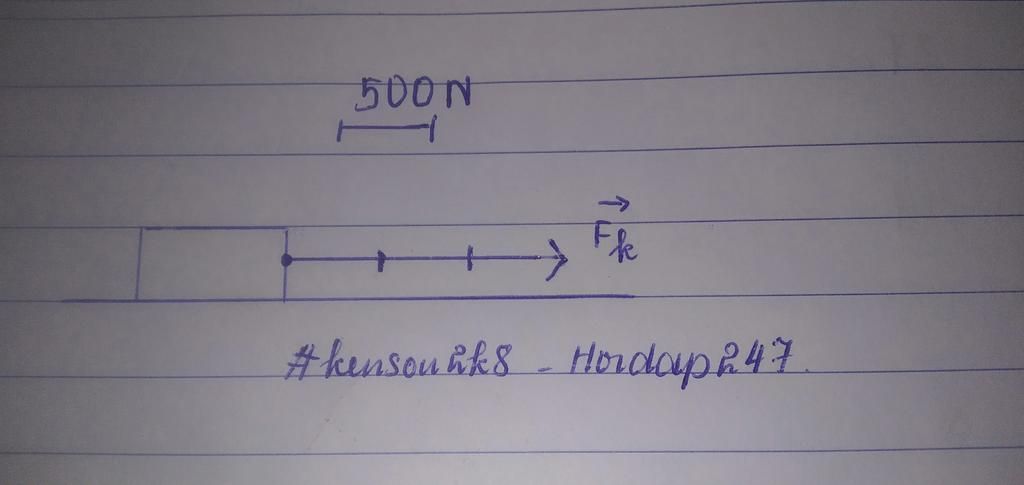 500N
→
F k
#kenson2k8 - Hoidap247.